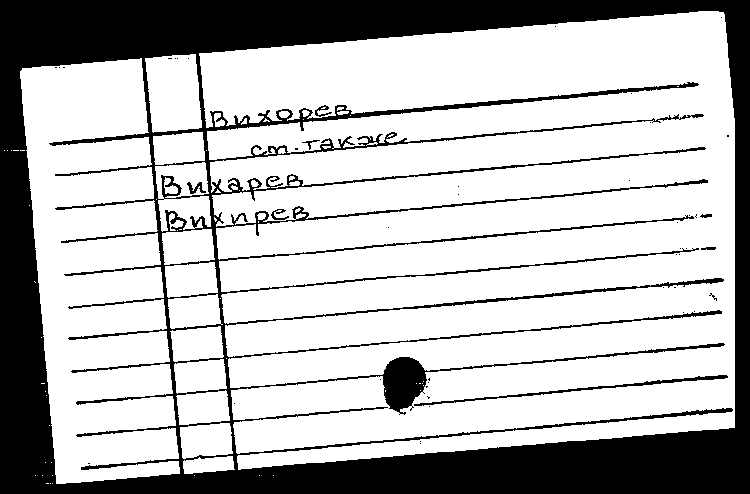 Вихорев
см. также
Вихарев
Вихирев